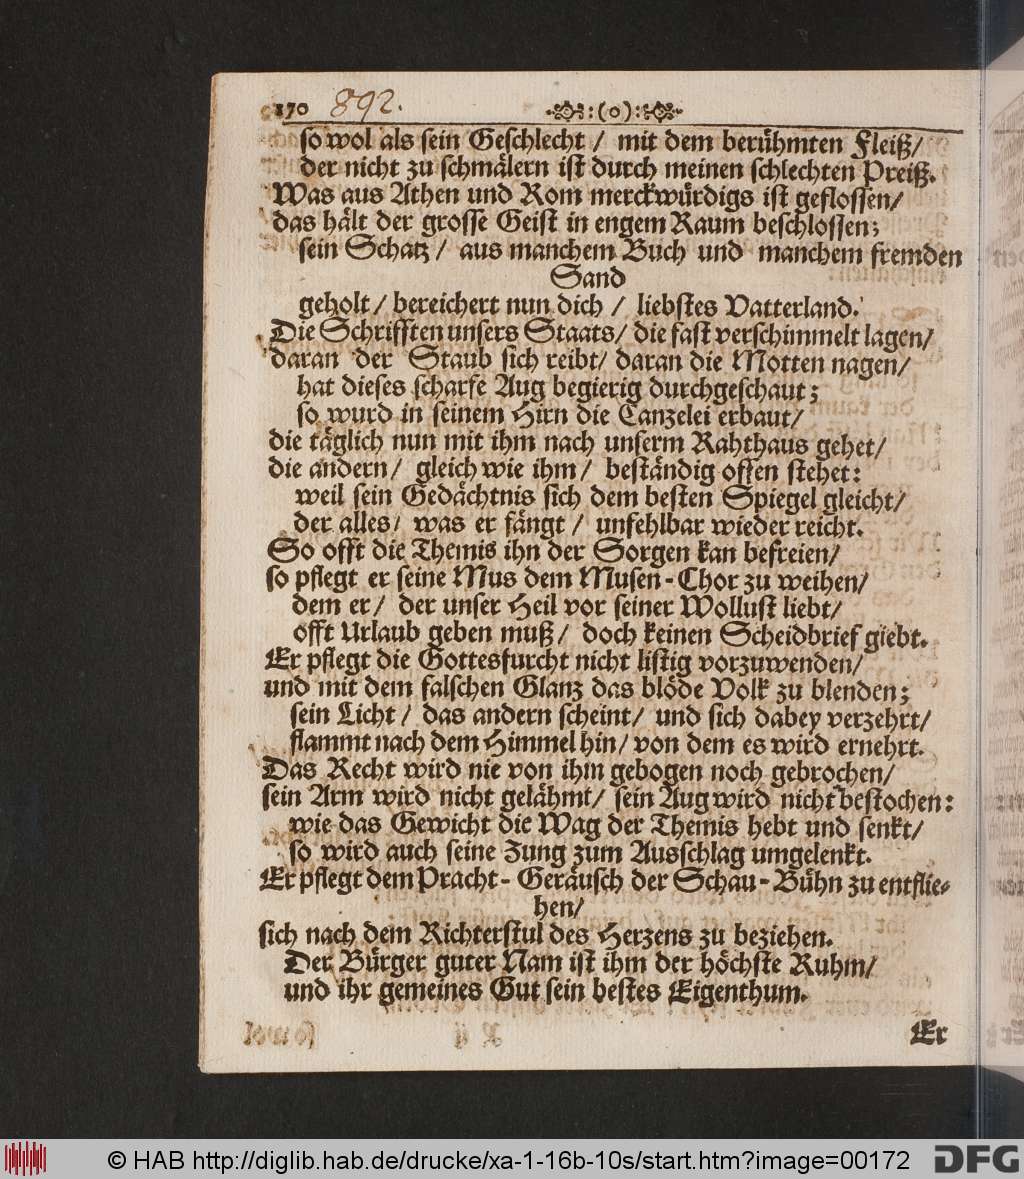 170 892. :(0):
so wol als sein Geschlecht / mit dem berühmten Fleiß/
der nicht zu schmälern ist durch meinen schlechten Preiß.
Was aus Athen und Rom merckwürdigs ist geflossen/
das hält der grosse Geist in engem Raum beschlossen;
sein Schatz / aus manchem Buch und manchem fremden
Sand
geholt / bereichert nun dich / liebstes Vatterland.
Die Schrifften unsers Staats / die fast verschimmelt lagen/
daran der Staub sich reibt / daran die Motten nagen/
hat dieses scharfe Aug begierig durchgeschaut;
so wurd in seinem Hirn die Canzelei erbaut/
die täglich nun mit ihm nach unserm Rahthaus gehet/
die andern / gleich wie ihm / beständig offen stehet:
weil sein Gedächtnis sich dem besten Spiegel gleicht/
der alles / was er fängt / unfehlbar wieder reicht.
So offt die Themis ihn der Sorgen kan befreien/
so pflegt er seine Mus dem Musen-Chor zu weihen/
dem er / der unser Heil vor seiner Wollust liebt/
offt Urlaub geben muß / doch keinen Scheidbrief giebt.
Er pflegt die Gottesfurcht nicht listig vorzuwenden/
und mit dem falschen Glanz das blöde Volk zu blenden;
sein Licht / das andern scheint / und sich dabey verzehrt/
flammt nach dem Himmel hin / von dem es wird ernehrt.
Das Recht wird nie von ihm gebogen noch gebrochen/
sein Arm wird nicht gelähmt / sein Aug wird nicht bestochen:
wie das Gewicht die Wag der Themis hebt und senkt/
so wird auch seine Zung zum Ausschlag umgelenkt.
Er pflegt dem Pracht-Geräusch der Schau-Bühn zu entflie-
hen/
sich nach dem Richterstul des Herzens zu beziehen.
Der Bürger guter Nam ist ihm der höchste Ruhm/
und ihr gemeines Gut sein bestes Eigenthum.
Er
© HAB http://diglib.hab.de/drucke/xa-1-16b-10s/start.htm?image=00172 DFG